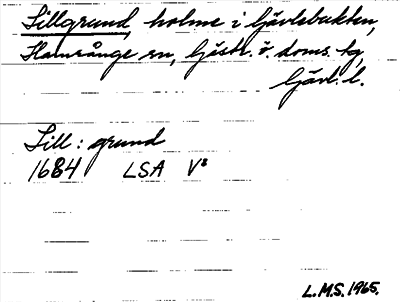 Sillgrund, holme i Gävlebukten,
Hamrånge sn, Gästr. ö. doms. hg,
Gävl. l.
Sill : grund
1684 LSA V⁸
L.M.S. 1965.